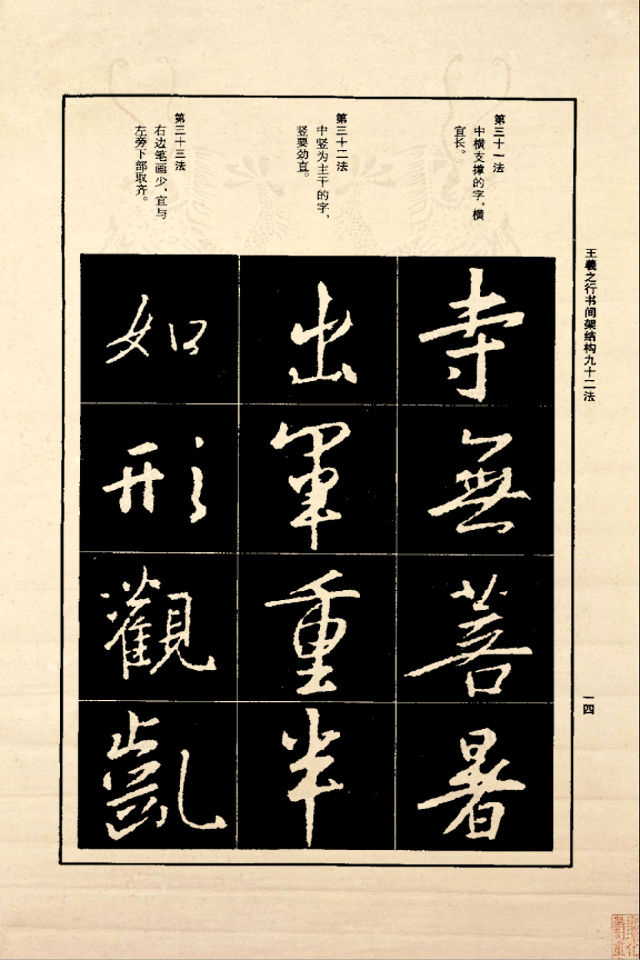 王羲之行书间架结构九十二法
一四
第三十一法
中横支撑的字，横
宜长。
寺無菩暑
第三十二法
中竖为主干的字，
竖要劲直。
出軍重半
第三十三法
右边笔画少，宜与
左旁下部取齐。
如形觀凱